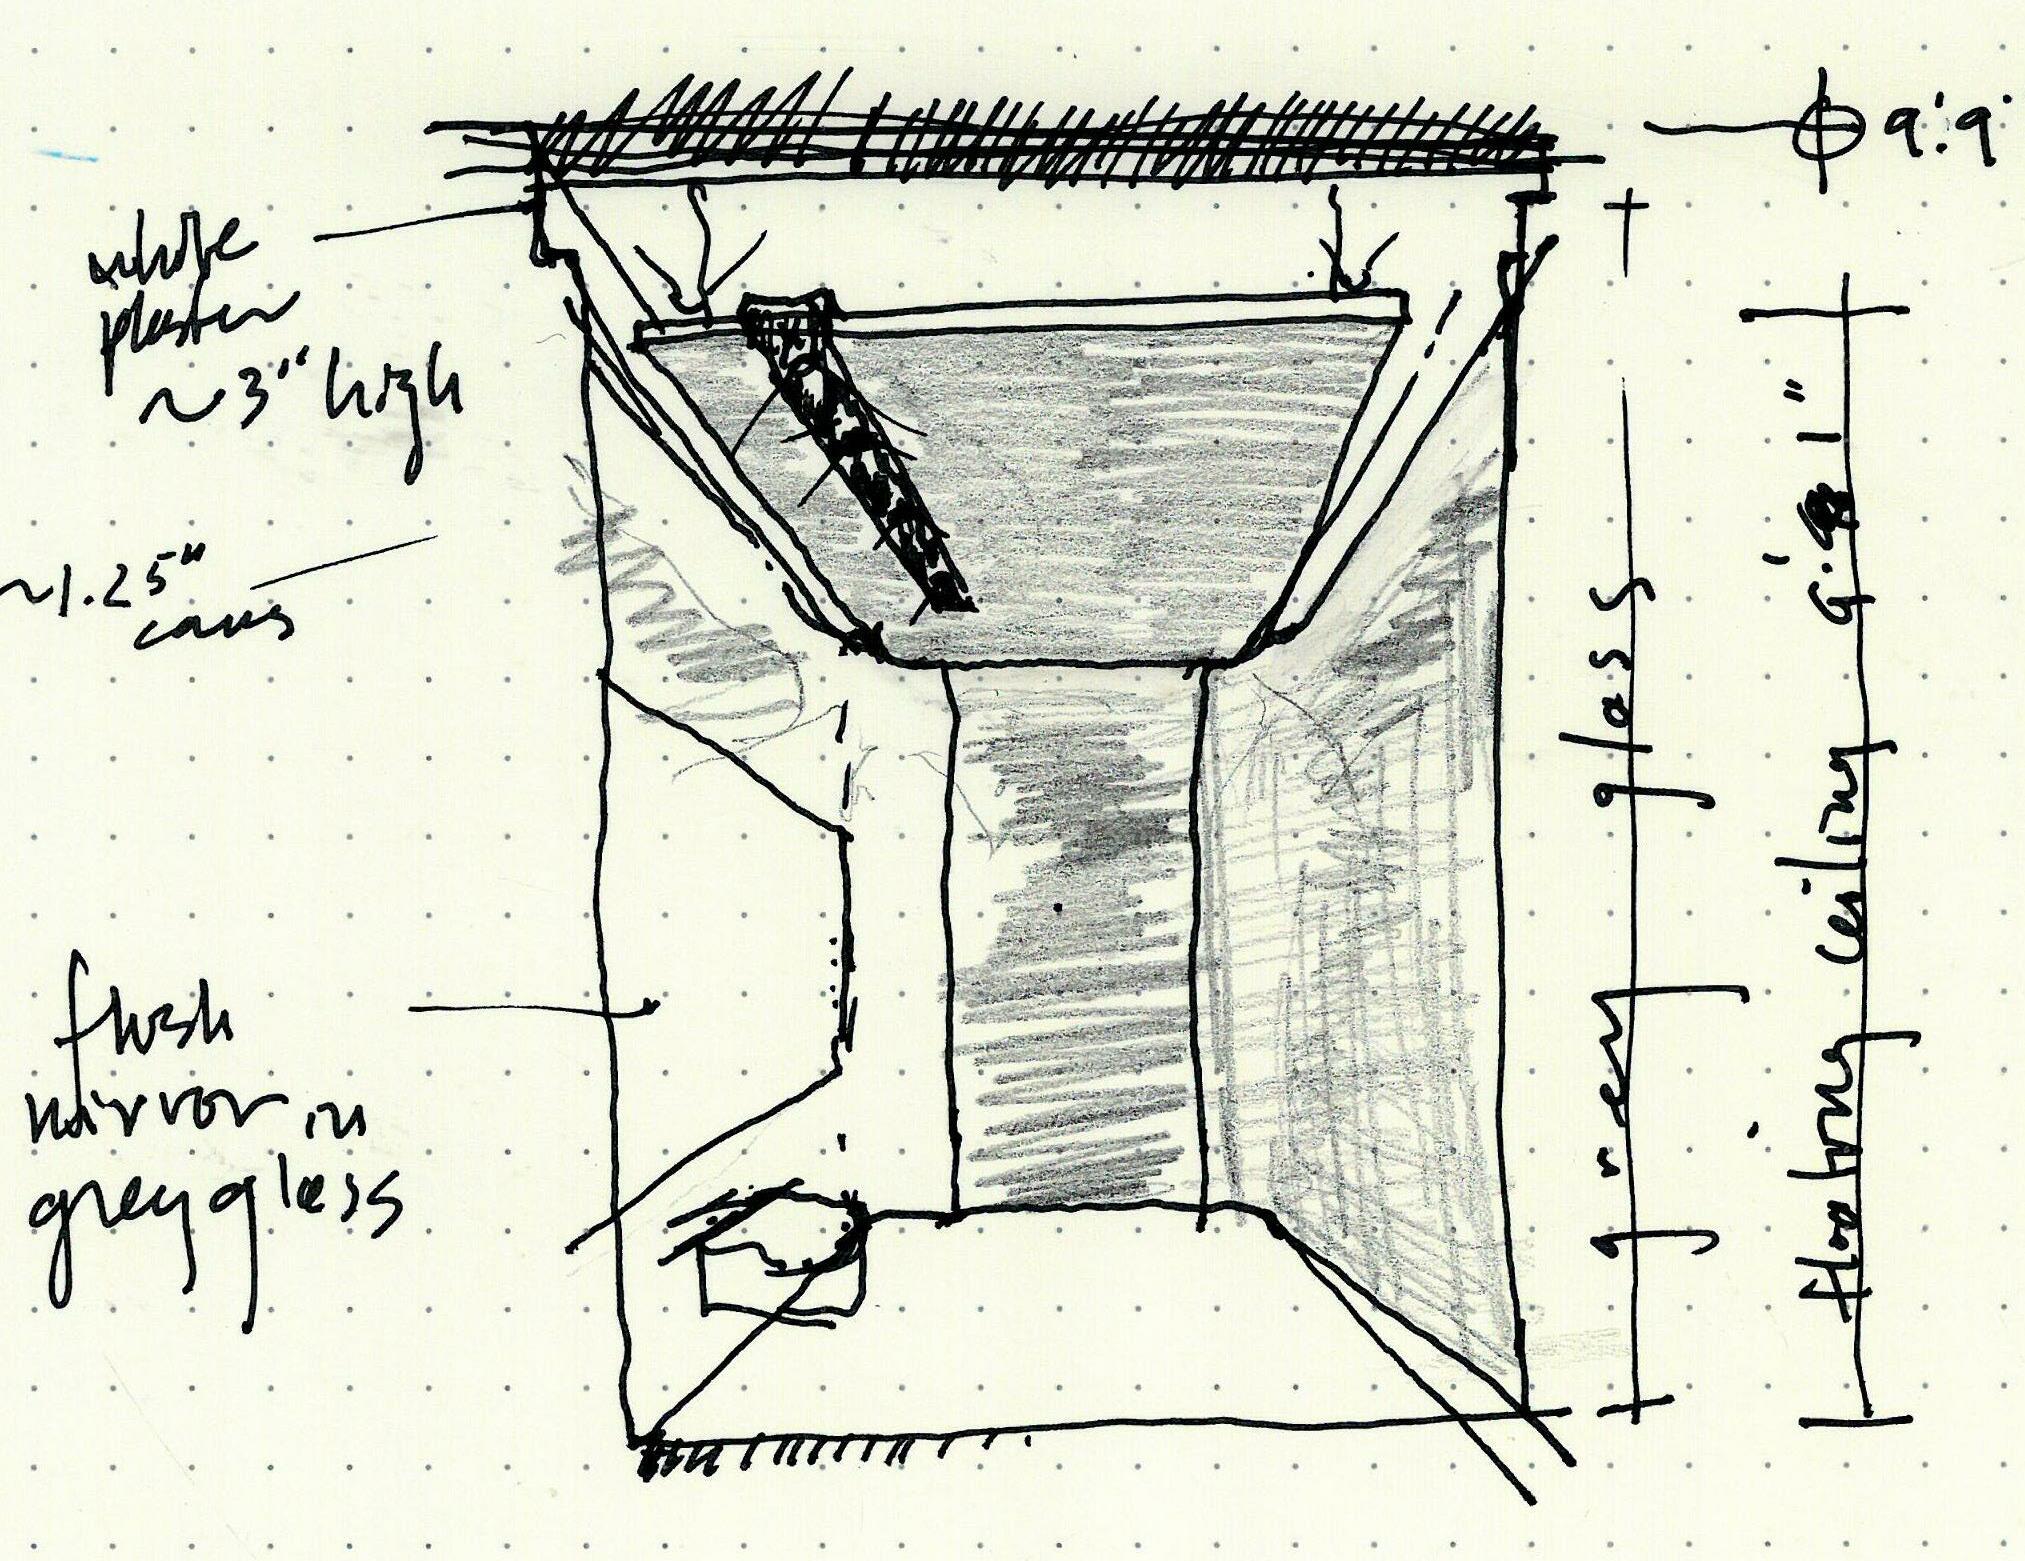 white
plaster
~3" high
~1.25"
flush
mirror in
grey glass
9'.9"
grey glass
floating ceiling 9'. 1"